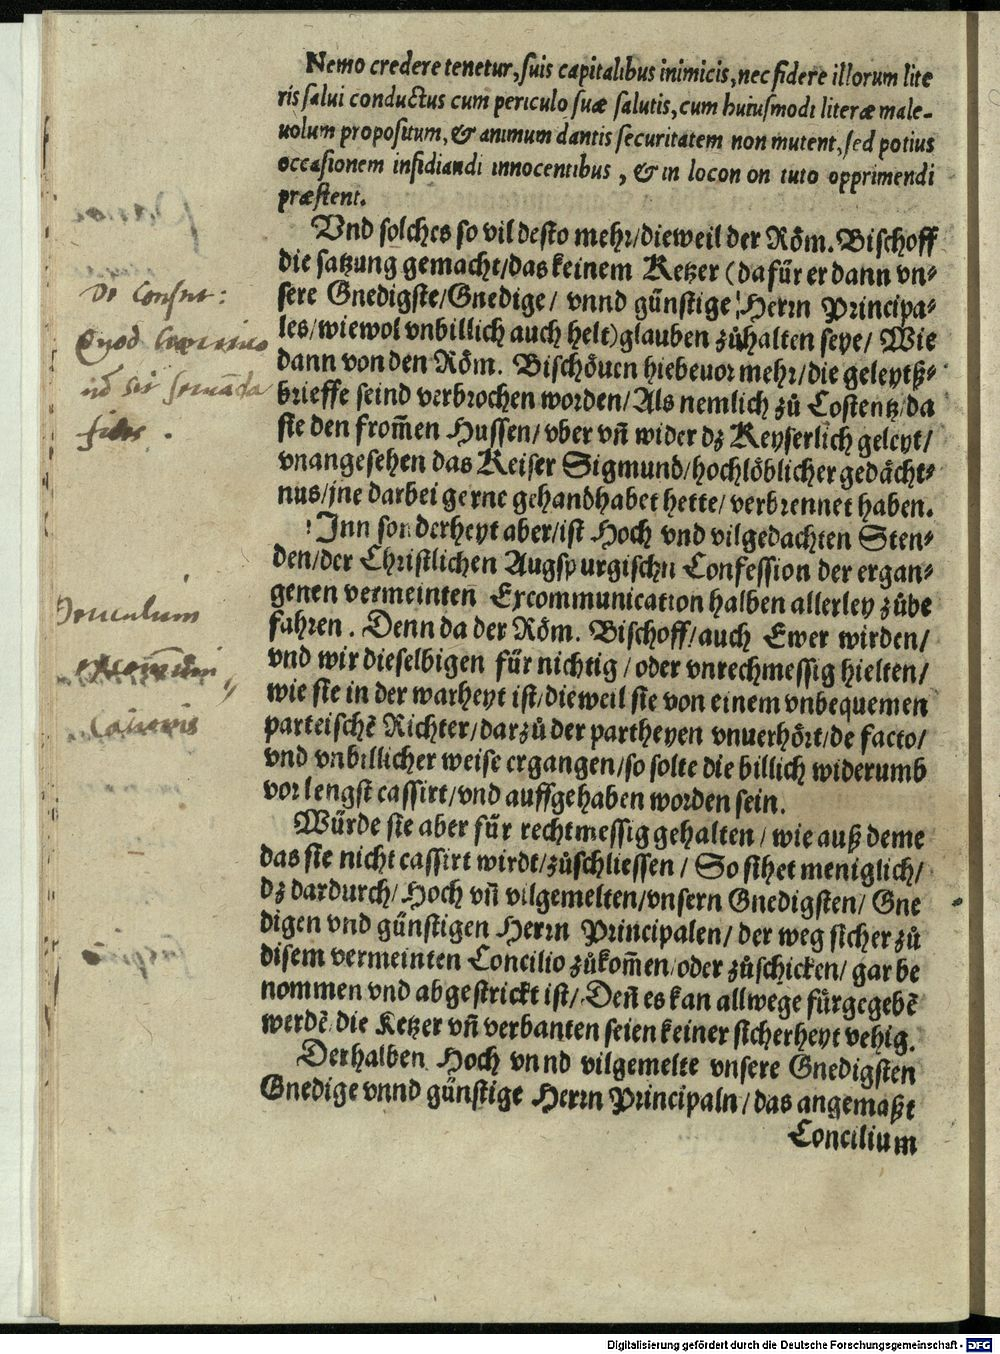 Nemo credere tenetur, suis capitalibus inimicis, nec fidere illorum lite
ris salui conductus cum periculo suæ salutis, cum huiusmodi literæ male-
uolum propositum, & animum dantis securitatem non mutent, sed potius
occasionem insidiandi innocentibus, & in locon on tuto opprimendi
præstent.
Vnd solches so vil desto mehr/ dieweil der Röm. Bischoff
die satzung gemacht/ das keinem Ketzer (dafür er dann vn⸗
sere Gnedigste/ Gnedige/ vnnd günstige Herrn Principa⸗
les/ wiewol vnbillich auch helt) glauben zůhalten seye/ Wie
dann von den Röm. Bischöuen hiebeuor mehr/ die geleytß⸗
brieffe seind verbrochen worden/ Als nemlich zů Costentz/ da
sie den from̃en Hussen/ vber vñ wider dz Keyserlich geleyt/
vnangesehen das Keiser Sigmund/ hochlöblicher gedächt⸗
nus/ jne darbei gerne gehandhabet hette/ verbrennet haben.
Jnn sonderheyt aber/ ist Hoch vnd vilgedachten Sten⸗
den/ der Christlichen Augspurgischn Confession der ergan⸗
genen vermeinten Excommunication halben allerley zůbe
fahren. Denn da der Röm. Bischoff/ auch Ewer wirden/
vnd wir dieselbigen für nichtig/ oder vnrechmessig hielten/
wie sie in der warheyt ist/ dieweil sie von einem vnbequemen
parteischẽ Richter/ darzů der partheyen vnuerhört/ de facto/
vnd vnbillicher weise ergangen/ so solte die billich widerumb
vor lengst cassirt/ vnd auffgehaben worden sein.
Würde sie aber für rechtmessig gehalten/ wie auß deme
das sie nicht cassirt wirdt/ zůschliessen/ So sihet meniglich/
dz dardurch/ Hoch vñ vilgemelten/ vnsern Gnedigsten/ Gne
digen vnd günstigen Herrn Principalen/ der weg sicher zů
disem vermeinten Concilio zůkom̃en/ oder zůschicken/ gar be
nommen vnd abgestrickt ist/ Deñ es kan allwege fürgegebẽ
werdẽ/ die Ketzer vñ verbanten seien keiner sicherheyt vehig.
Derhalben Hoch vnnd vilgemelte vnsere Gnedigsten
Gnedige vnnd günstige Herrn Principaln/ das angemaßt
Concilium
De Consut:
Quod
sit seruãda
fides.
Periculum
Digitalisierung gefördert durch die Deutsche Forschungsgemeinschaft - DFG